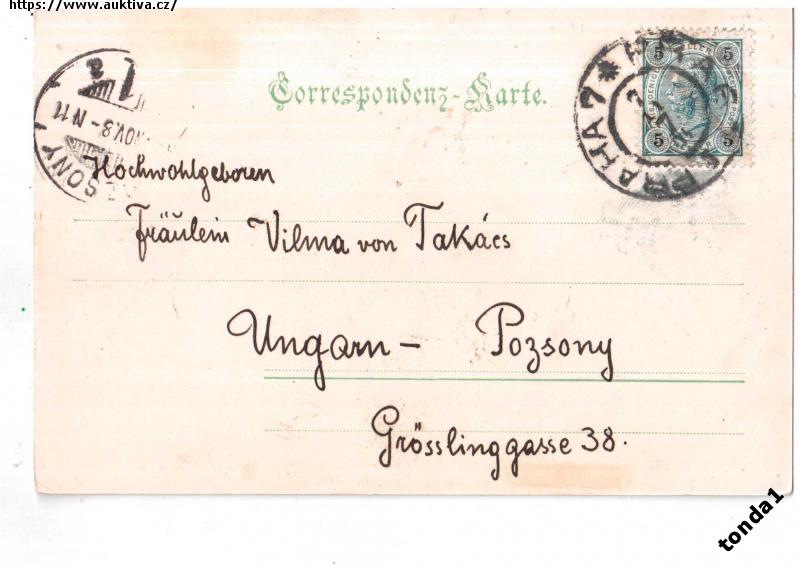 https://www.auktiva.cz/
Correspondenz-Karte.
5 5
5 5
PRAHA 7
SONY
NOV. 8 - N 11
Hochwohlgeboren
Fräulein Vilma von Takács
Ungarn - Pozsony
Grösslinggasse 38.
tonda1